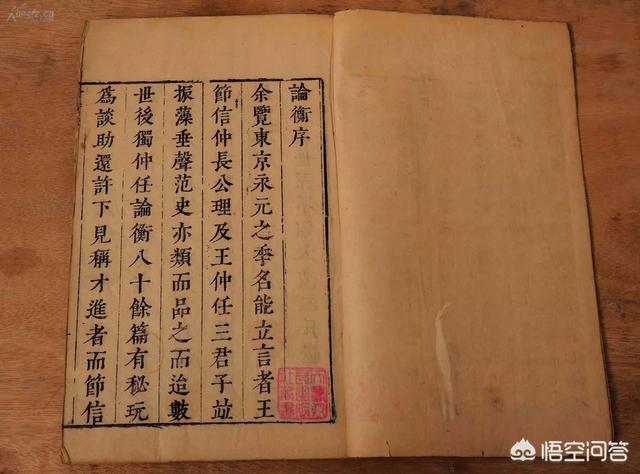 論衡序
余覽東京永元之季名能立言者王
節信仲長公理及王仲任三君子竝
振藻垂聲范史亦類而品之而追數
世後獨仲任論衡八十餘篇有秘玩
為談助還許下見稱才進者而節信
悟空问答